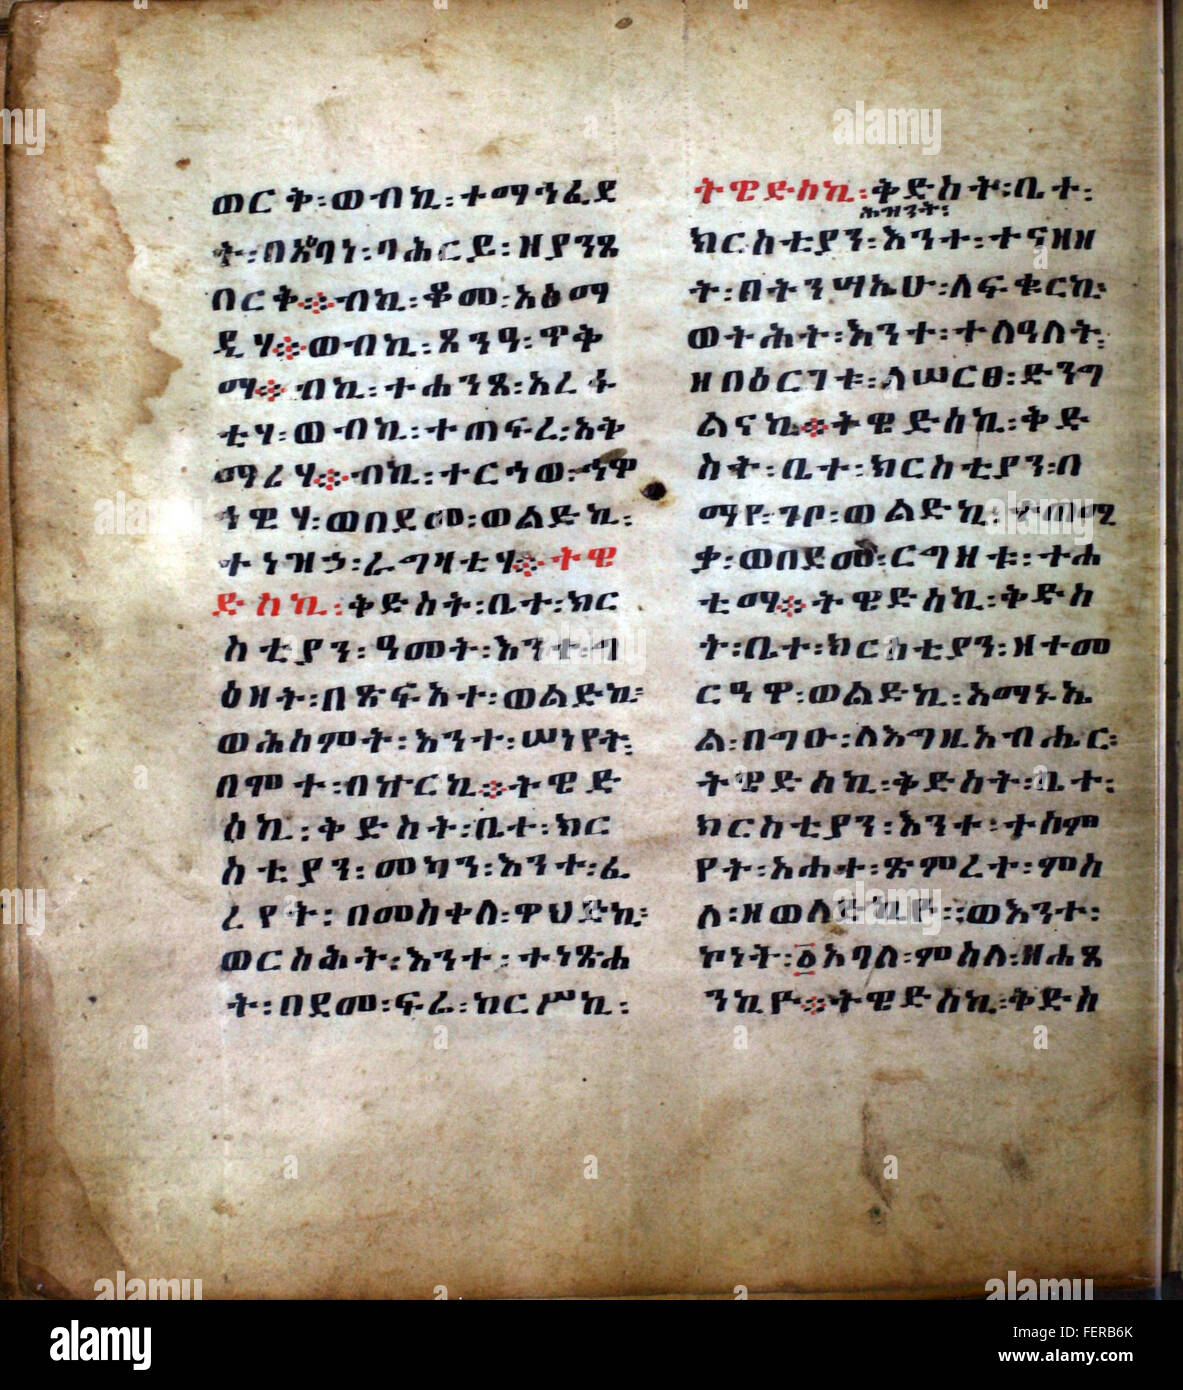 ወርቅ፡ወብኪ፡ተማኅፈደ
ት፡በጾባነ፡ባሕርይ፡ዘያንጼ
በርቅ፨ብኪ፡ቆመ፡አፅማ
ዲሃ፨ወብኪ፡ጸንዓ፡ጥቅ
ማ፨ብኪ፡ተሐንጸ፡አረፋ
ቲሃ፡ወብኪ፡ተጠፍረ፡አቅ
ማረሃ፨ብኪ፡ተርኅወ፡ኆዋ
ኅዊሃ፡ወበደመ፡ወልድኪ፡
ተነዝኃ፡ራግዛቲሃ፨ትዌ
ድስኪ፡ቅድስት፡ቤተ፡ክር
ስቲያን፡ዓመት፡እንተ፡ግ
ዕዘት፡በጽፍአተ፡ወልድኪ፡
ወሕስምት፡እንተ፡ሠነየት፡
በሞተ፡ብኵርኪ፨ትዌድ
ስኪ፡ቅድስት፡ቤተ፡ክር
ስቲያን፡መካን፡እንተ፡ፈ
ረየት፡በመስቀለ፡ዋህድኪ፡
ወርስሕት፡እንተ፡ተነጽሐ
ት፡በደመ፡ፍሬ፡ከርሥኪ፡
ትዌድስኪ፡ቅድስት፡ቤተ፡
ሕዝንት፡
ክርስቲያን፡እንተ፡ተናዘዘ
ት፡በትንሣኤሁ፡ለፍቁርኪ፡
ወትሕት፡እንተ፡ተለዓለት፡
ዘበዕርገቱ፡ለሠርፀ፡ድንግ
ልናኪ፨ትዌድስኪ፡ቅድ
ስት፡ቤተ፡ክርስቲያን፡በ
ማየ፡ገቦ፡ወልድኪ፡ተጠሚ
ቃ፡ወበደመ፡ርግዘቱ፡ተሐ
ቲማ፨ትዌድስኪ፡ቅድስ
ት፡ቤተ፡ክርስቲያን፡ዘተመ
ርዓዋ፡ወልድኪ፡አማኑኤ
ል፡በግዑ፡ለእግዚአብሔር፡
ትዌድስኪ፡ቅድስት፡ቤተ፡
ክርስቲያን፡እንተ፡ተስም
የት፡አሐተ፡ጽምረት፡ምስ
ለ፡ዘወለድኪዮ፡፡ወእንተ፡
ኮነት፡፩አባለ፡ምስለ፡ዘሐፀ
ንኪዮ፨ትዌድስኪ፡ቅድስ
alamy
Image ID: FERB6K
www.alamy.com